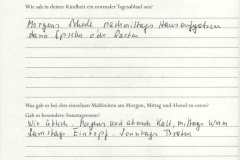 Wie sah in deiner Kindheit ein normaler Tagesablauf aus?
Morgens Schule, nachmittags Hausaufgaben
dann Spielen oder Garten
Was gab es bei den einzelnen Mahlzeiten am Morgen, Mittag und Abend zu essen?
Gab es besondere Sonntagsessen?
Wie üblich, Morgens und abends Kalt, mittags Warm
Samstags Eintopf, Sonntags Braten